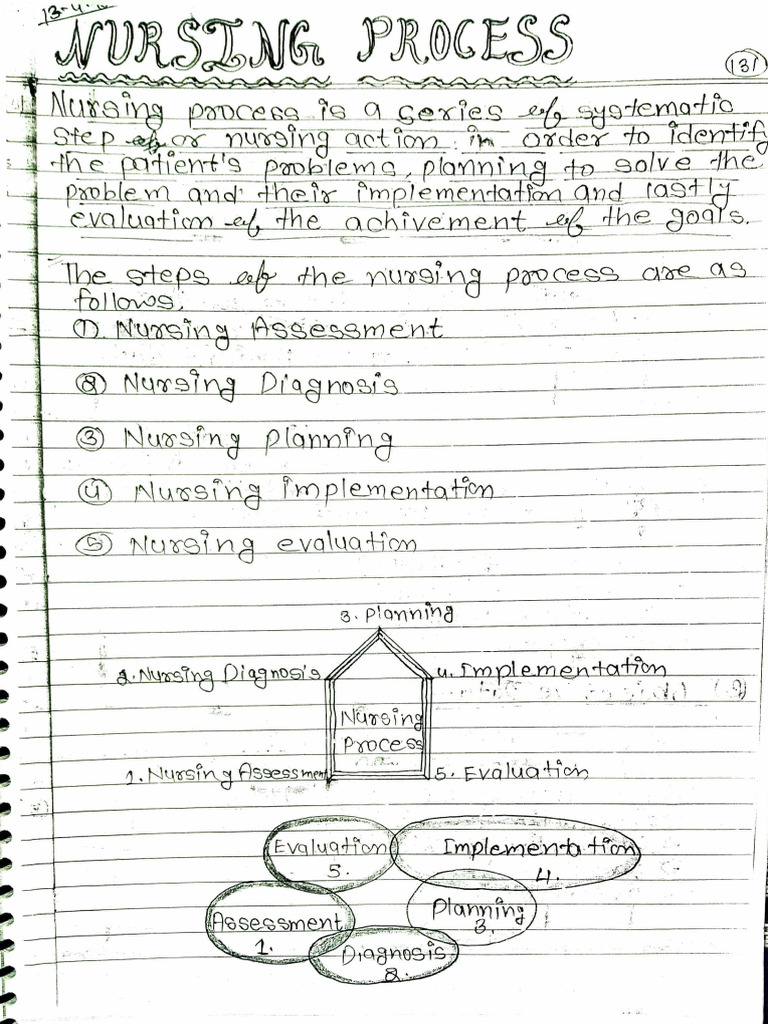 13-4-
NURSING PROCESS
131
Nursing process is a series of systematic
step of or nursing action in order to identify
the patient's problems, planning to solve the
problem and their implementation and lastly
evaluation of the achivement of the goals.
The steps of the nursing process are as
follows,
① Nursing Assessment
② Nursing Diagnosis
③ Nursing planning
④ Nursing implementation
⑤ Nursing evaluation
3. Planning
2. Nursing Diagnosis
4. Implementation
Nursing
Process
1. Nursing Assessment
5. Evaluation
Evaluation
5.
Implementation
4.
Assessment
1.
Planning
3.
Diagnosis
2.